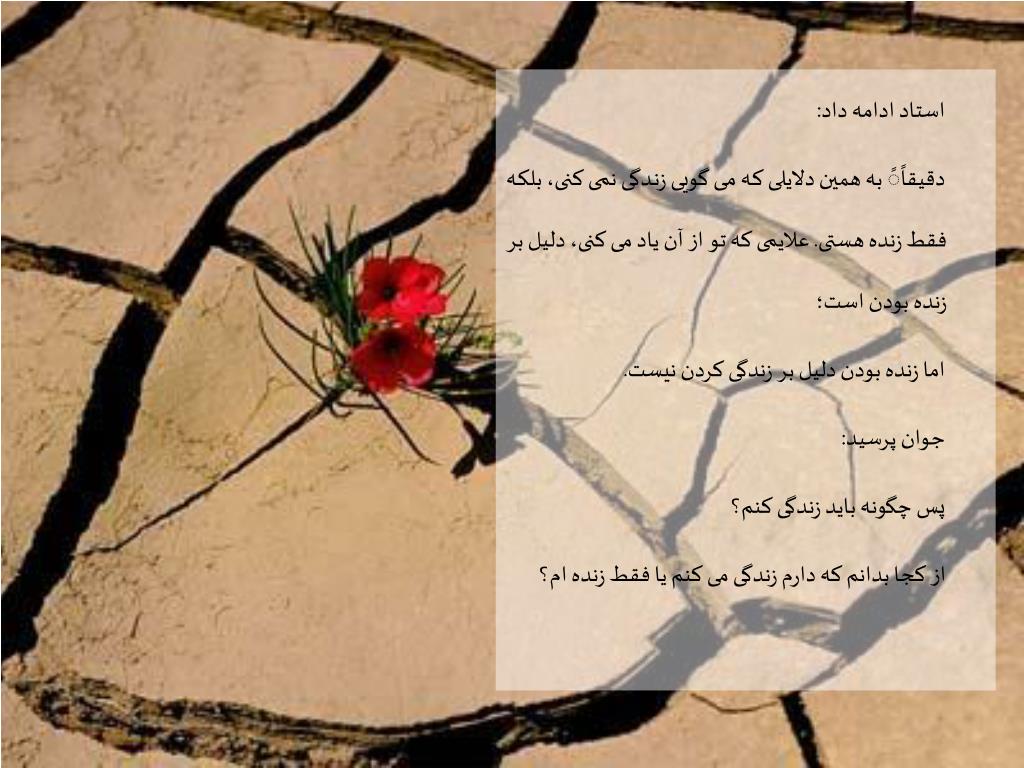 استاد ادامه داد:
دقیقاًً به همین دلایلی که می گویی زندگی نمی کنی، بلکه
فقط زنده هستی. علایمی که تو از آن یاد می کنی، دلیل بر
زنده بودن است؛
اما زنده بودن دلیل بر زندگی کردن نیست.
جوان پرسید:
پس چگونه باید زندگی کنم؟
از کجا بدانم که دارم زندگی می کنم یا فقط زنده ام؟